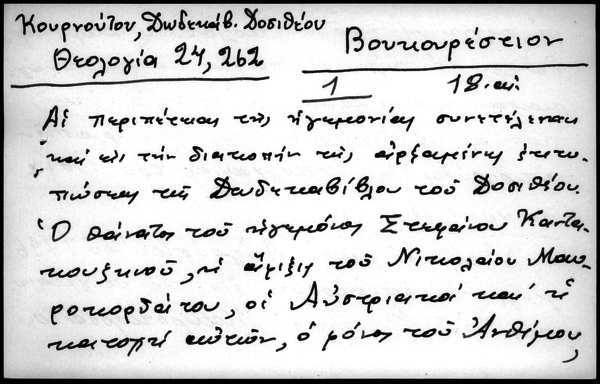 Κουρνούτου, Δωδεκάβ. Δοσιθέου
Θεολογία 24, 262
Βουκουρέστιον
1
18. αἰ.
Αἱ περιπέτειαι τῆς ἡγεμονίας συνετέλεσαν
καὶ εἰς τὴν διακοπὴν τῆς ἀρξαμένης ἐκτυ-
πώσεως τῆς Δωδεκαβίβλου τοῦ Δοσιθέου.
Ὁ θάνατος τοῦ ἡγεμόνος Στεφάνου Καντα-
κουζηνοῦ, ἡ ἄφιξις τοῦ Νικολάου Μαυ-
ροκορδάτου, οἱ Αὐστριακοὶ καὶ ἡ
κατοχὴ αὐτῶν, ὁ φόνος τοῦ Ἀνθίμου,